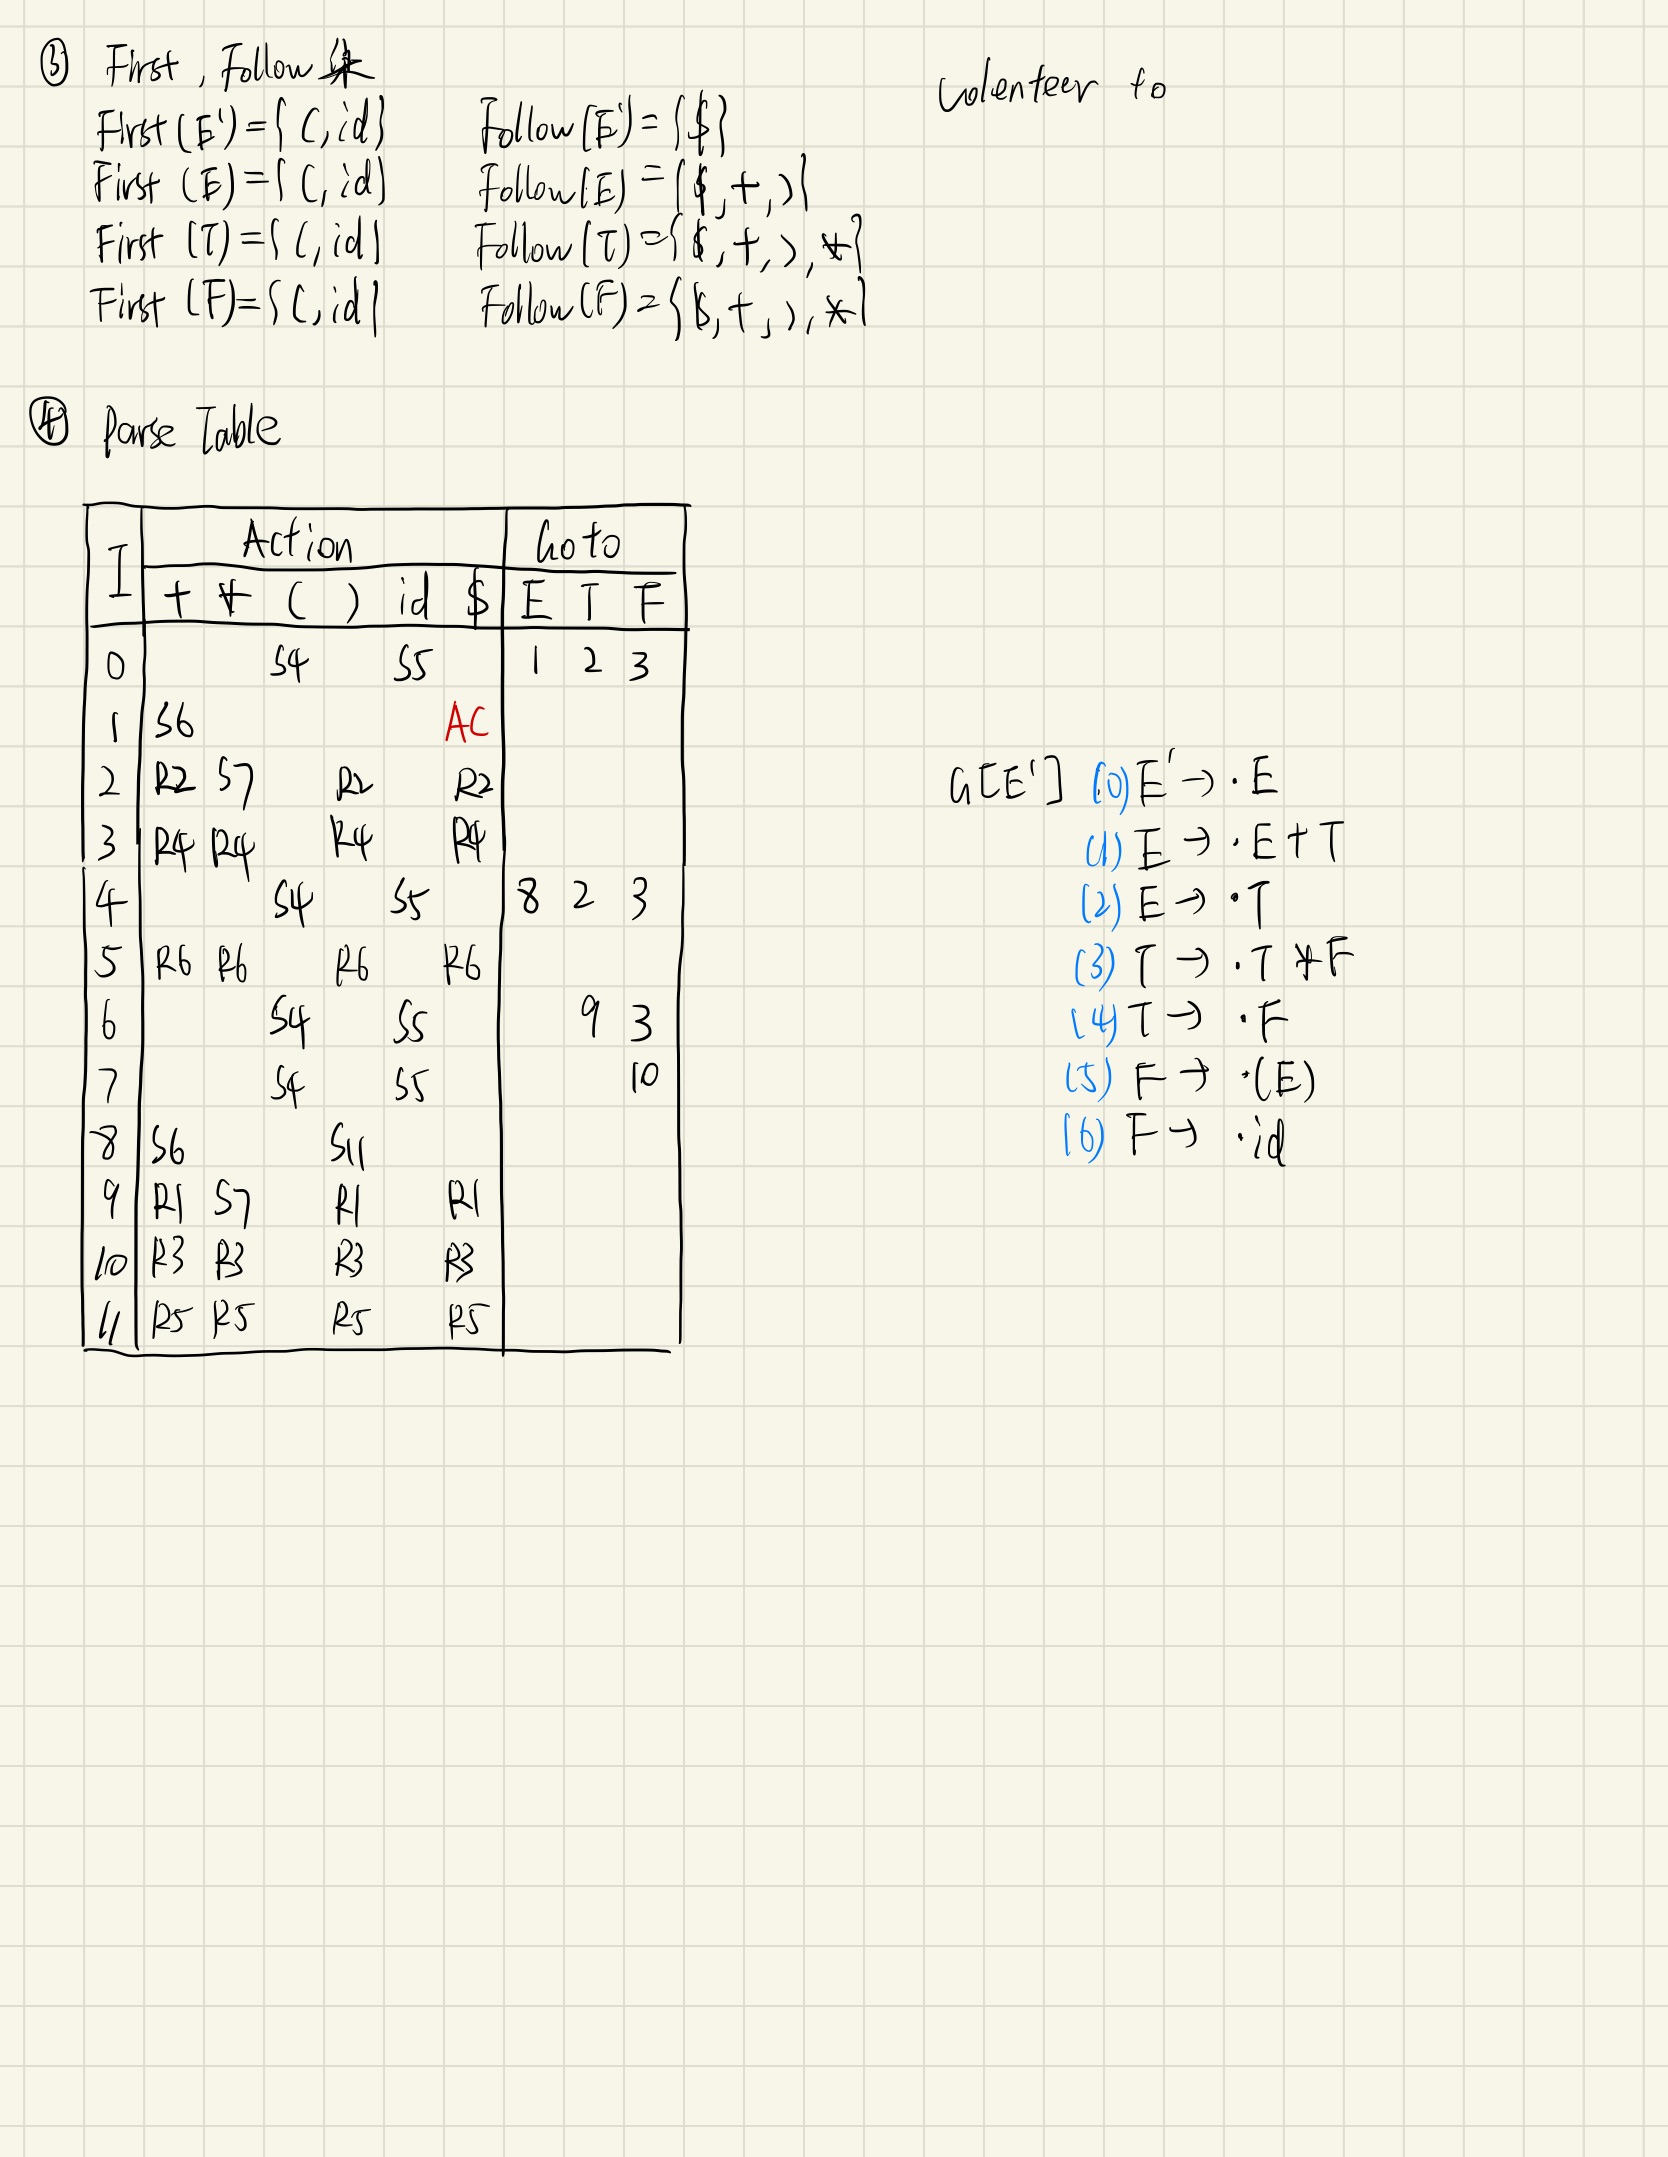 ③ First, Follow 集
volenteer to
First(E')={ (, id} Follow(E')={$}
First (E)={ (, id} Follow(E)={$,+,)}
First (T)={ (, id} Follow(T)={$,+,),*}
First (F)={ (, id} Follow(F)={$,+,),*}
④ Parse Table
I Action Goto
+ * ( ) id $ E T F
0 S4 S5 1 2 3
1 S6 AC
2 R2 S7 R2 R2
3 R4 R4 R4 R4
4 S4 S5 8 2 3
5 R6 R6 R6 R6
6 S4 S5 9 3
7 S4 S5 10
8 S6 S11
9 R1 S7 R1 R1
10 R3 R3 R3 R3
11 R5 R5 R5 R5
G[E'] (0) E' → ·E
(1) E → ·E+T
(2) E → ·T
(3) T → ·T*F
(4) T → ·F
(5) F → ·(E)
(6) F → ·id